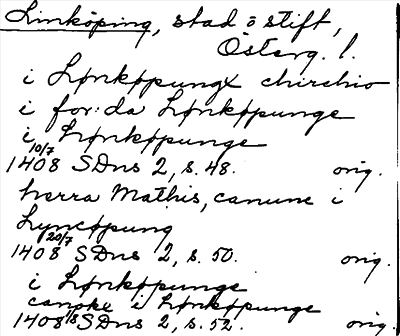 Linköping, stad o stift,
Österg. l.
i Lønkøpungx chirchio
i for:da Lønkøpunge
i Lønkøpunge
10/7
1408 SDns 2, s. 48. orig.
herra Mathis, canunc i
Lyncøpung
20/7
1408 SDns 2, s. 50. orig.
i Lønkøpunge
canoke i Lønkøpunge
1408 SDns 2, s. 52. orig.